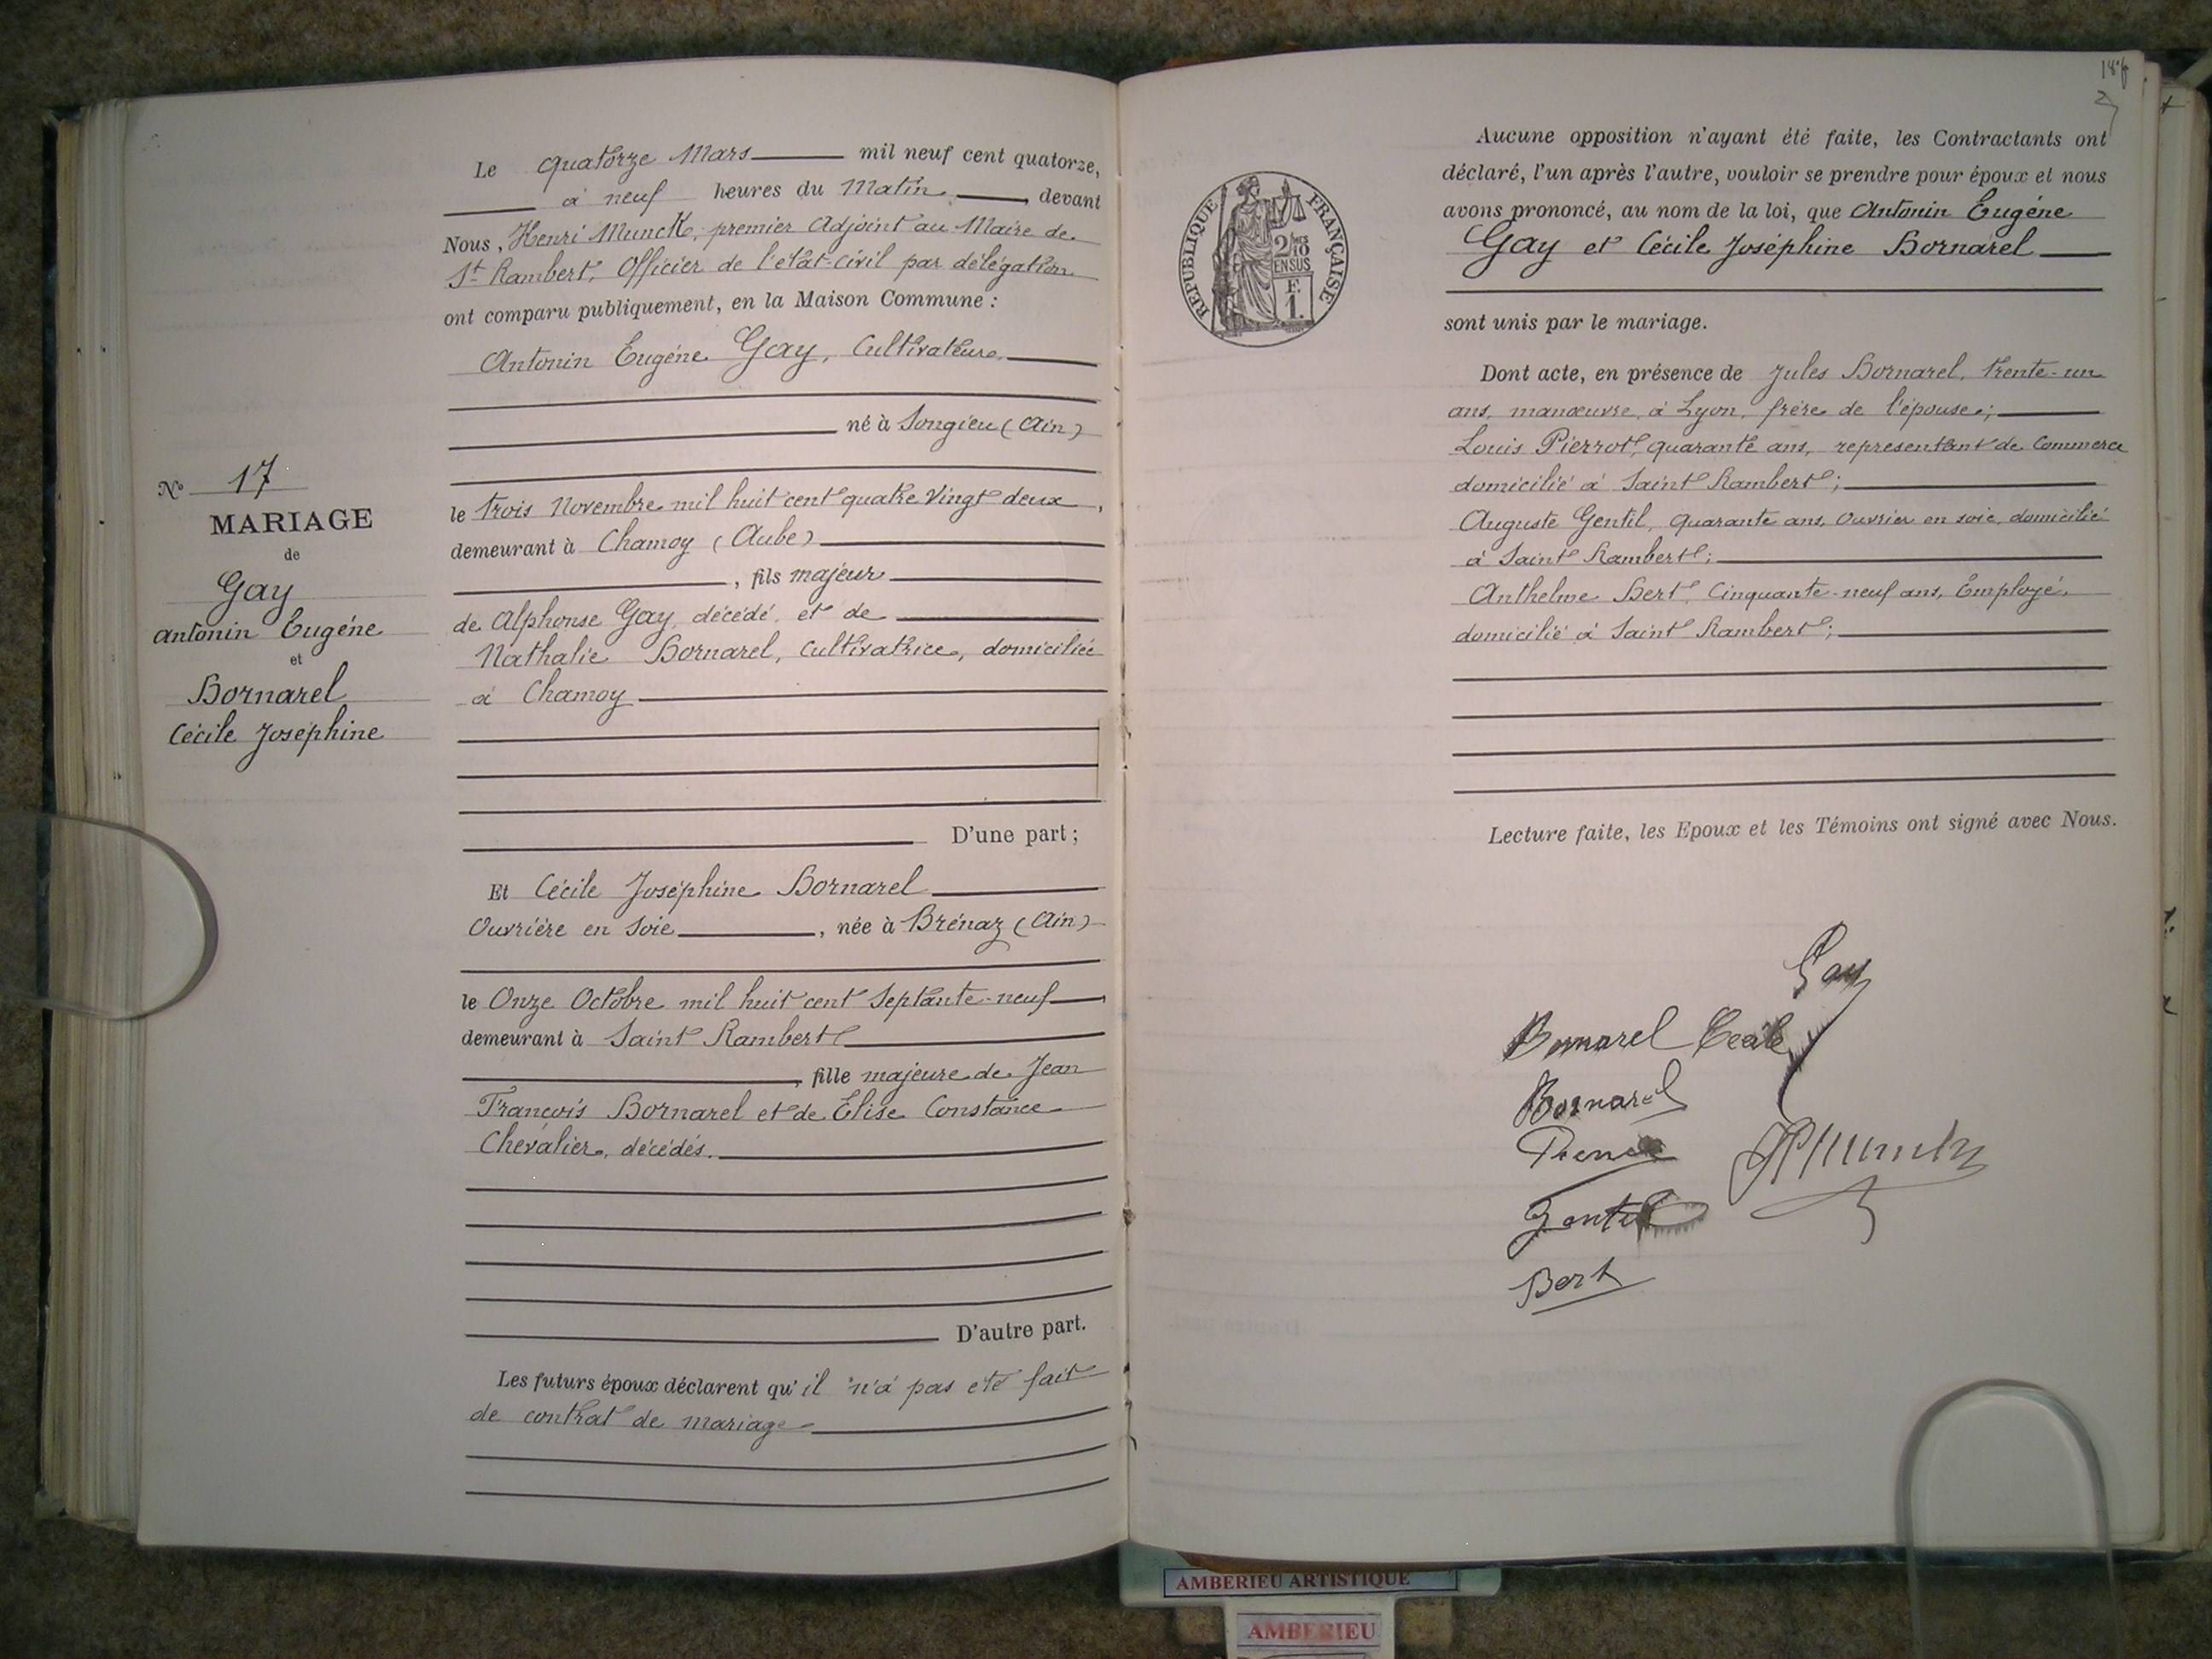 N° 17
MARIAGE
de
Gay
Antonin Eugéne
et
Bornarel
Cécile Joséphine
Le quatorze Mars mil neuf cent quatorze,
à neuf heures du Matin, devant
Nous, Henri Munck, premier Adjoint au Maire de
St Rambert, Officier de l'état-civil par délégation
ont comparu publiquement, en la Maison Commune :
Antonin Eugéne Gay, Cultivateur,
né à Songieu (Ain)
le trois Novembre mil huit cent quatre vingt deux,
demeurant à Chamoy (Aube)
, fils majeur
de Alphonse Gay, décédé, et de
Nathalie Bornarel, Cultivatrice, domiciliée
à Chamoy
D'une part ;
Et Cécile Joséphine Bornarel
Ouvrière en Soie, née à Brénaz (Ain)
le Onze Octobre mil huit cent Septante-neuf
demeurant à Saint Rambert
, fille majeure de Jean
François Bornarel et de Elise Constance
Chevalier, décédés.
D'autre part.
Les futurs époux déclarent qu'il n'a pas été fait
de contrat de mariage
2
RÉPUBLIQUE FRANÇAISE
2/10mes
EN SUS
F.
1.
Aucune opposition n'ayant été faite, les Contractants ont
déclaré, l'un après l'autre, vouloir se prendre pour époux et nous
avons prononcé, au nom de la loi, que Antonin Eugéne
Gay et Cécile Joséphine Bornarel
sont unis par le mariage.
Dont acte, en présence de Jules Bornarel, trente-un
ans, manœuvre, à Lyon, frère de l'épouse ;
Louis Pierrot, quarante ans, représentant de Commerce
domicilié à Saint Rambert ;
Auguste Gentil, quarante ans, Ouvrier en soie, domicilié
à Saint Rambert ;
Anthelme Bert, Cinquante-neuf ans, Employé,
domicilié à Saint Rambert ;
Lecture faite, les Epoux et les Témoins ont signé avec Nous.
Gay
Bornarel Cecile
Bornarel
Gentil
Bert
AMBERIEU ARTISTIQUE
AMBERIEU